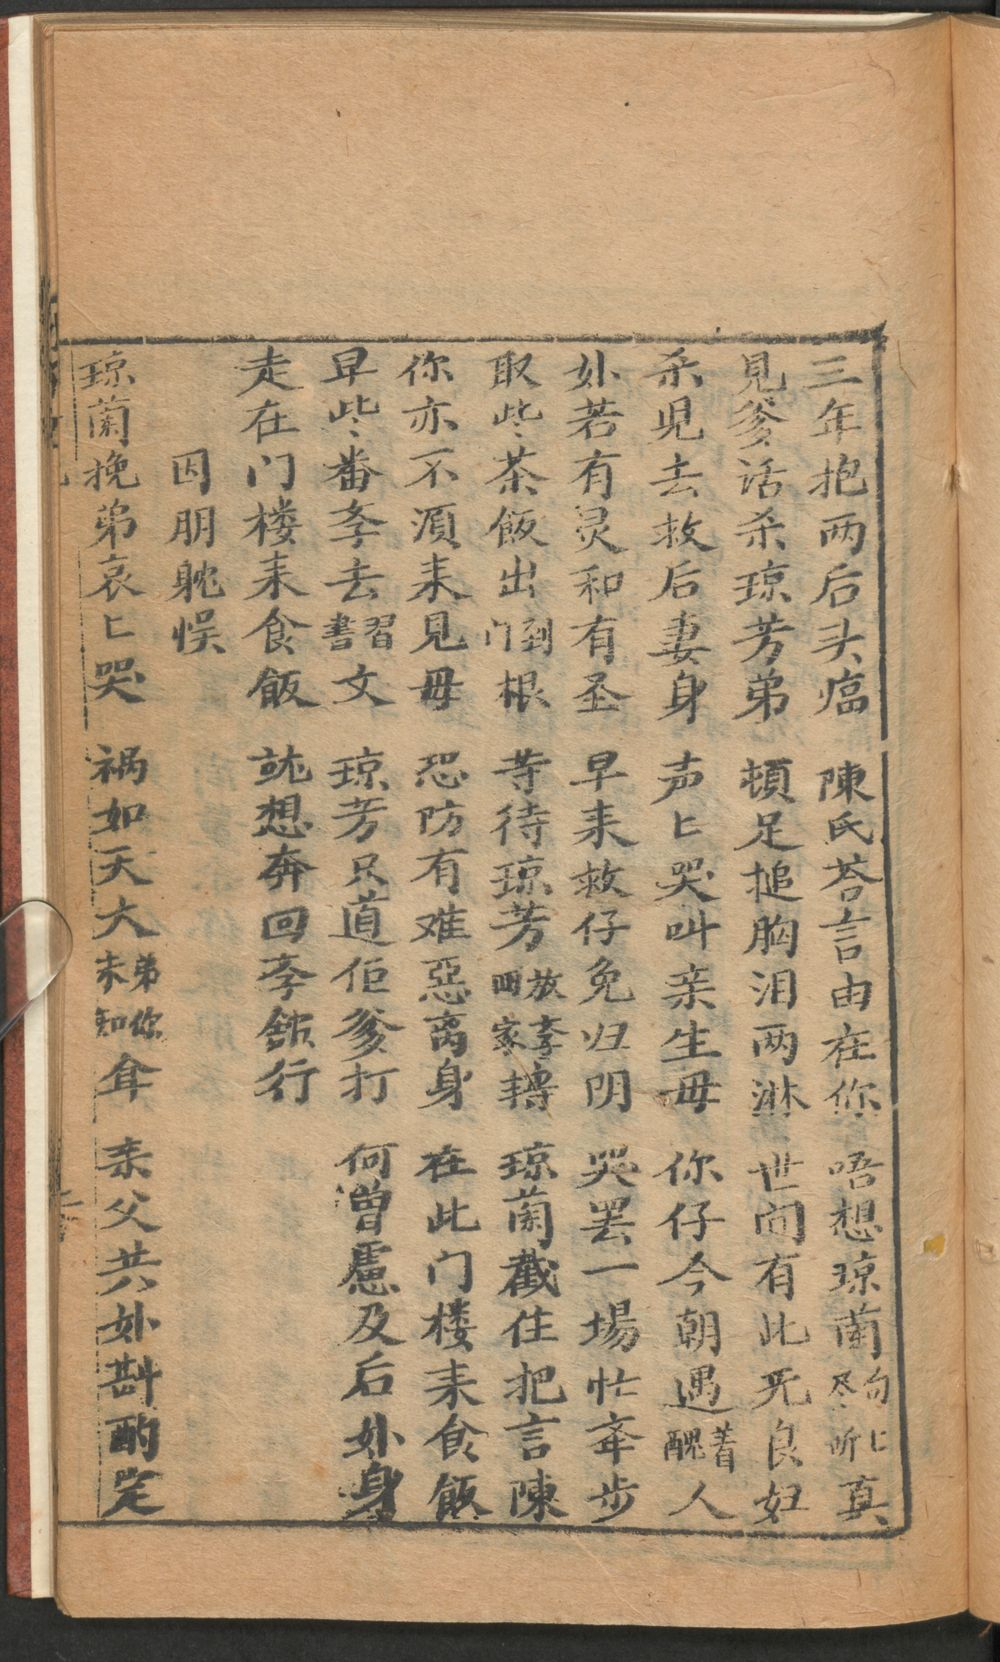 三年抱两后头痛　陳氏荅言由在你　唔想琼蘭句〻尽听真
見爹话杀琼芳弟　頓足搥胸泪两淋　世间有此无良妇
杀児去救后妻身　声匕哭叫亲生母　你仔今朝遇着醜人
처若有灵和有圣　早来救仔免归阴　哭罢一場忙举步
取些茶飯出到门根　等待琼芳放孝回家轉　琼蘭截住把言陳
你亦不湏来見母　恐防有难惡离身　在此门楼来食飯
早些番孝去習書文　琼芳只道佢爹打　何曾慮及后처身
走在门楼来食飯　就想奔回孝舘行
因朋躭悮
琼蘭挽弟哀匕哭　祸如天大弟你未知音　亲父共처斟酌定